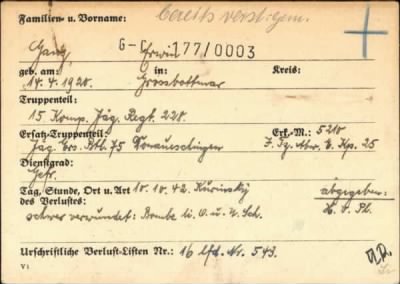 Familien- u. Vorname: bereits verst. gem.
Gantz G-C 177/0003 Erwin
geb. am: in: Kreis:
14.4.1920. Grossbottwar
Truppenteil:
15 Komp. Jäg. Regt. 228.
Ersatz-Truppenteil: Erk.-M.: 5210
Jäg. Ers. Btl. 75 Donaueschingen E. Kp. 25
Dienstgrad:
Gefr.
Tag, Stunde, Ort u. Art 10.10.42. Kurinskij abgegeben:
des Verlustes: H. V. Pl.
schwer verwundet: Bombe li. O. u. U. Sch.
Urschriftliche Verlust-Listen Nr.: 16 lfd. Nr. 543.
V 1